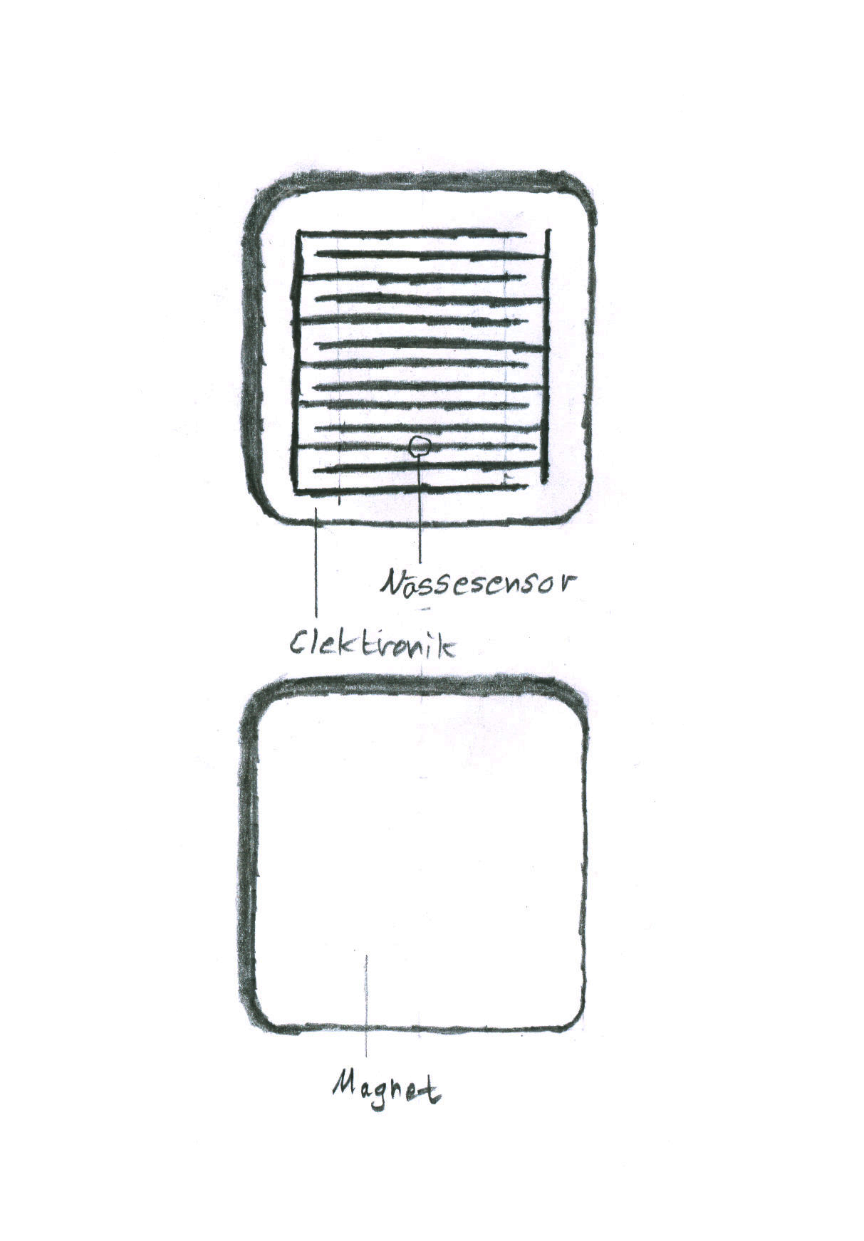 Nässesensor
Elektronik
Magnet